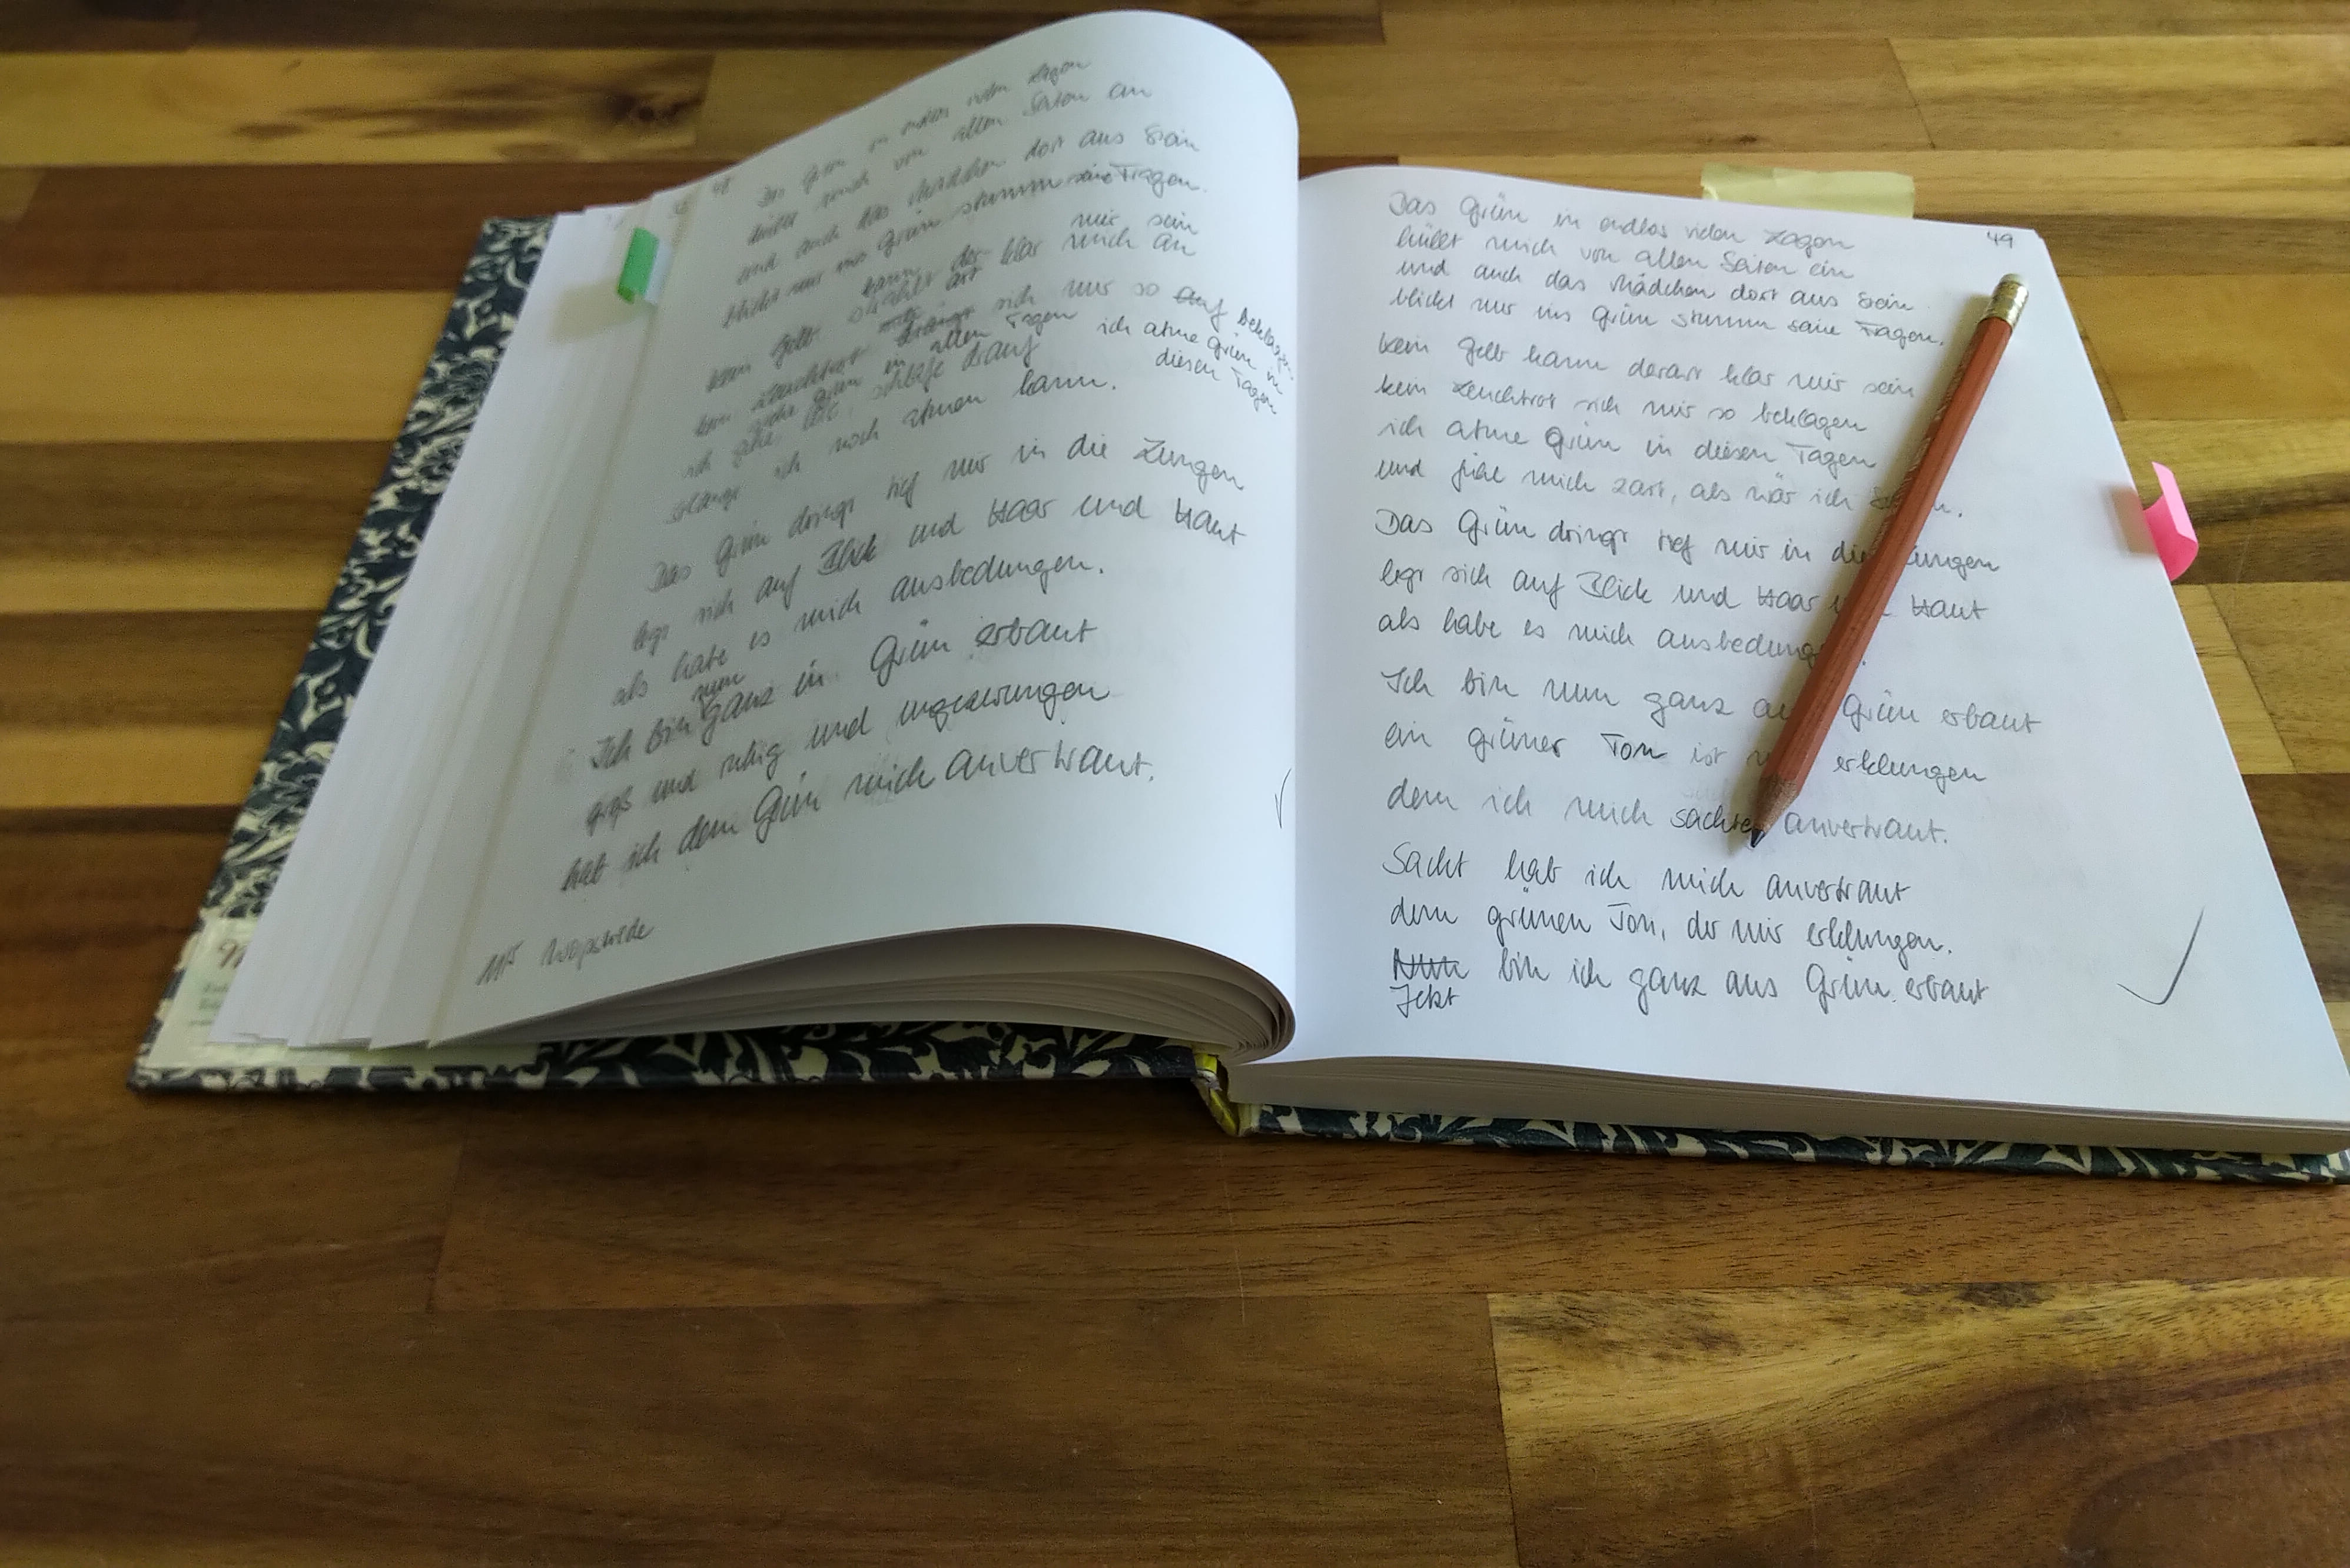 48
Das Grün in endlos vielen Lagen
hüllt mich von allen Seiten ein
und auch das Mädchen dort aus Stein
blickt nur ins Grün stumm seine Fragen.
mir sein
kann der klar mich an
kein Gelb strahlt art
kein Leuchtrot drängt sich mir so auf beklagen
in allen Tagen ich atme Grün in
diesen Tagen
ich schlafe drauf
solange ich noch atmen kann.
Das Grün dringt tief mir in die Lungen
legt sich auf Blick und Haar und Haut
als habe es mich ausbedungen.
nun
Ich bin ganz in Grün erbaut
groß und ruhig und ungezwungen
hab ich dem Grün mich anvertraut.
Worpswede
49
Das Grün in endlos vielen Lagen
hüllt mich von allen Seiten ein
und auch das Mädchen dort aus Stein
blickt nur ins Grün stumm seine Fragen.
Kein Gelb kann derart klar mir sein
kein Leuchtrot sich mir so beklagen
ich atme Grün in diesen Tagen
und fühl mich zart, als wär ich
Das Grün dringt tief mir in die Lungen
legt sich auf Blick und Haar und Haut
als habe es mich ausbedungen.
Ich bin nun ganz aus Grün erbaut
ein grüner Ton ist mir erklungen
dem ich mich sachte anvertraut.
Sacht hab ich mich anvertraut
dem grünen Ton, der mir erklungen.
Nun bin ich ganz aus Grün erbaut
Jetzt